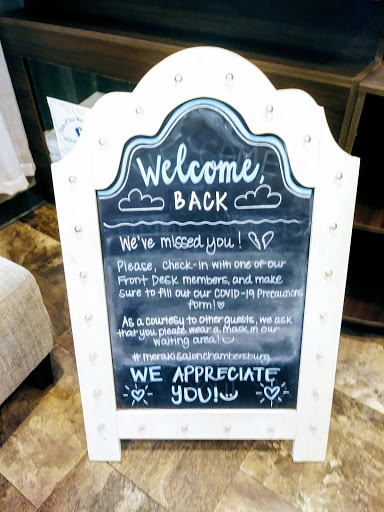 Welcome,
BACK
We've missed you!
Please, check-in with one of our
Front Desk members, and make
sure to fill out our COVID-19 Precautions
form!
As a courtesy to other guests, we ask
that you please wear a mask in our
waiting area!
#merakisalonchambersburg
WE APPRECIATE
YOU!